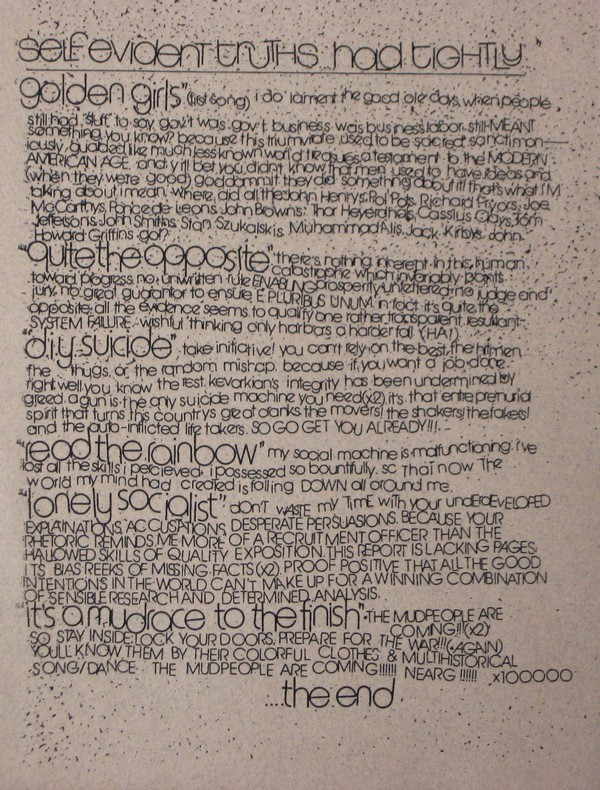 SELF EVIDENT TRUTHS had TIGHTLY"
"golden girls" (first song) i do lament the good ole days, when people
still had "stuff" to say. gov't was gov't, business was business, labor still MEANT
something, you know? because this triumvirate used to be sacred sanctimon-
iously guarded like much less known world treasures a testament to the MODERN
AMERICAN AGE. and y'll bet you didn't know that men used to have ideas and
(when they were good) goddammit they did something about it! that's what I'M
talking about. i mean, where did all the John Henrys, Pol Pots, Richard Pryors, Joe
McCarthys, Ponce de Leons, John Browns, Thor Heyerdhels, Cassius Clays, Tom
Jeffersons, John Smiths, Stan Szukalskis, Muhammad Alis, Jack Kirbys, John
Howard Griffins go!?
"quite the opposite" there's nothing inherent in this human
catastrophe which invariably points
toward progress. no unwritten rule ENABLING prosperity unfettered. no judge and
jury, no great guarantor to ensure E PLURIBUS UNUM. in fact it's quite the
opposite; all the evidence seems to qualify one rather transparent resultant-
SYSTEM FAILURE. wishful thinking only harbors a harder fall (HA!)
"d.i.y. suicide" take initiative! you can't rely on the best, the hitmen
the thugs, or the random mishap. because if you want a job done
right well, you know the rest. kevorkian's integrity has been undermined by
greed. a gun is the only suicide machine you need (x2) it's that entreprenurial
spirit that turns this countrys great cranks the movers! the shakers! the fakers!
and the auto-inflicted life takers. SO GO GET YOU ALREADY!!!
"read the rainbow" my social machine is malfunctioning. i've
lost all the skills i percieved, i possessed so bountifully. so that now the
world my mind had created is falling DOWN all around me.
"lonely socialist" don't WASTE my TIME with your underdeveloped
EXPLAINATIONS, ACCUSTATIONS, DESPERATE PERSUASIONS. BECAUSE YOUR
RHETORIC REMINDS ME MORE OF A RECRUITMENT OFFICER THAN THE
HALLOWED SKILLS OF QUALITY EXPOSITION. THIS REPORT IS LACKING PAGES;
ITS BIAS REEKS OF MISSING FACTS (X2) PROOF POSITIVE THAT ALL THE GOOD
INTENTIONS IN THE WORLD CAN'T MAKE UP FOR A WINNING COMBINATION
OF SENSIBLE RESEARCH AND DETERMINED ANALYSIS.
"it's a mudrace to the finish" THE MUDPEOPLE ARE
COMING!!! (x2)
SO STAY INSIDE, LOCK YOUR DOORS, PREPARE FOR THE WAR!!! (AGAIN)
YOU'LL KNOW THEM BY THEIR COLORFUL CLOTHES & MULTIHISTORICAL
SONG/DANCE THE MUDPEOPLE ARE COMING!!!!!! NEARG !!!!!! x100000
....the end